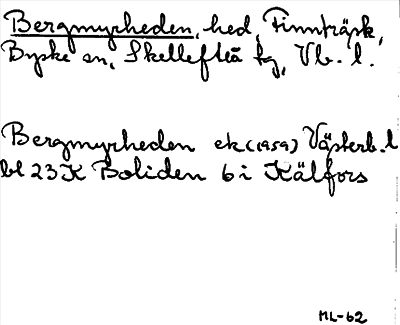 Bergmyrheden, hed, Finnträsk,
Byske sn, Skellefteå tg, Vb. l.
Bergmyrheden ek (1959) Västerb. l
bl 23K Boliden 6 i Kälfors
ML-62